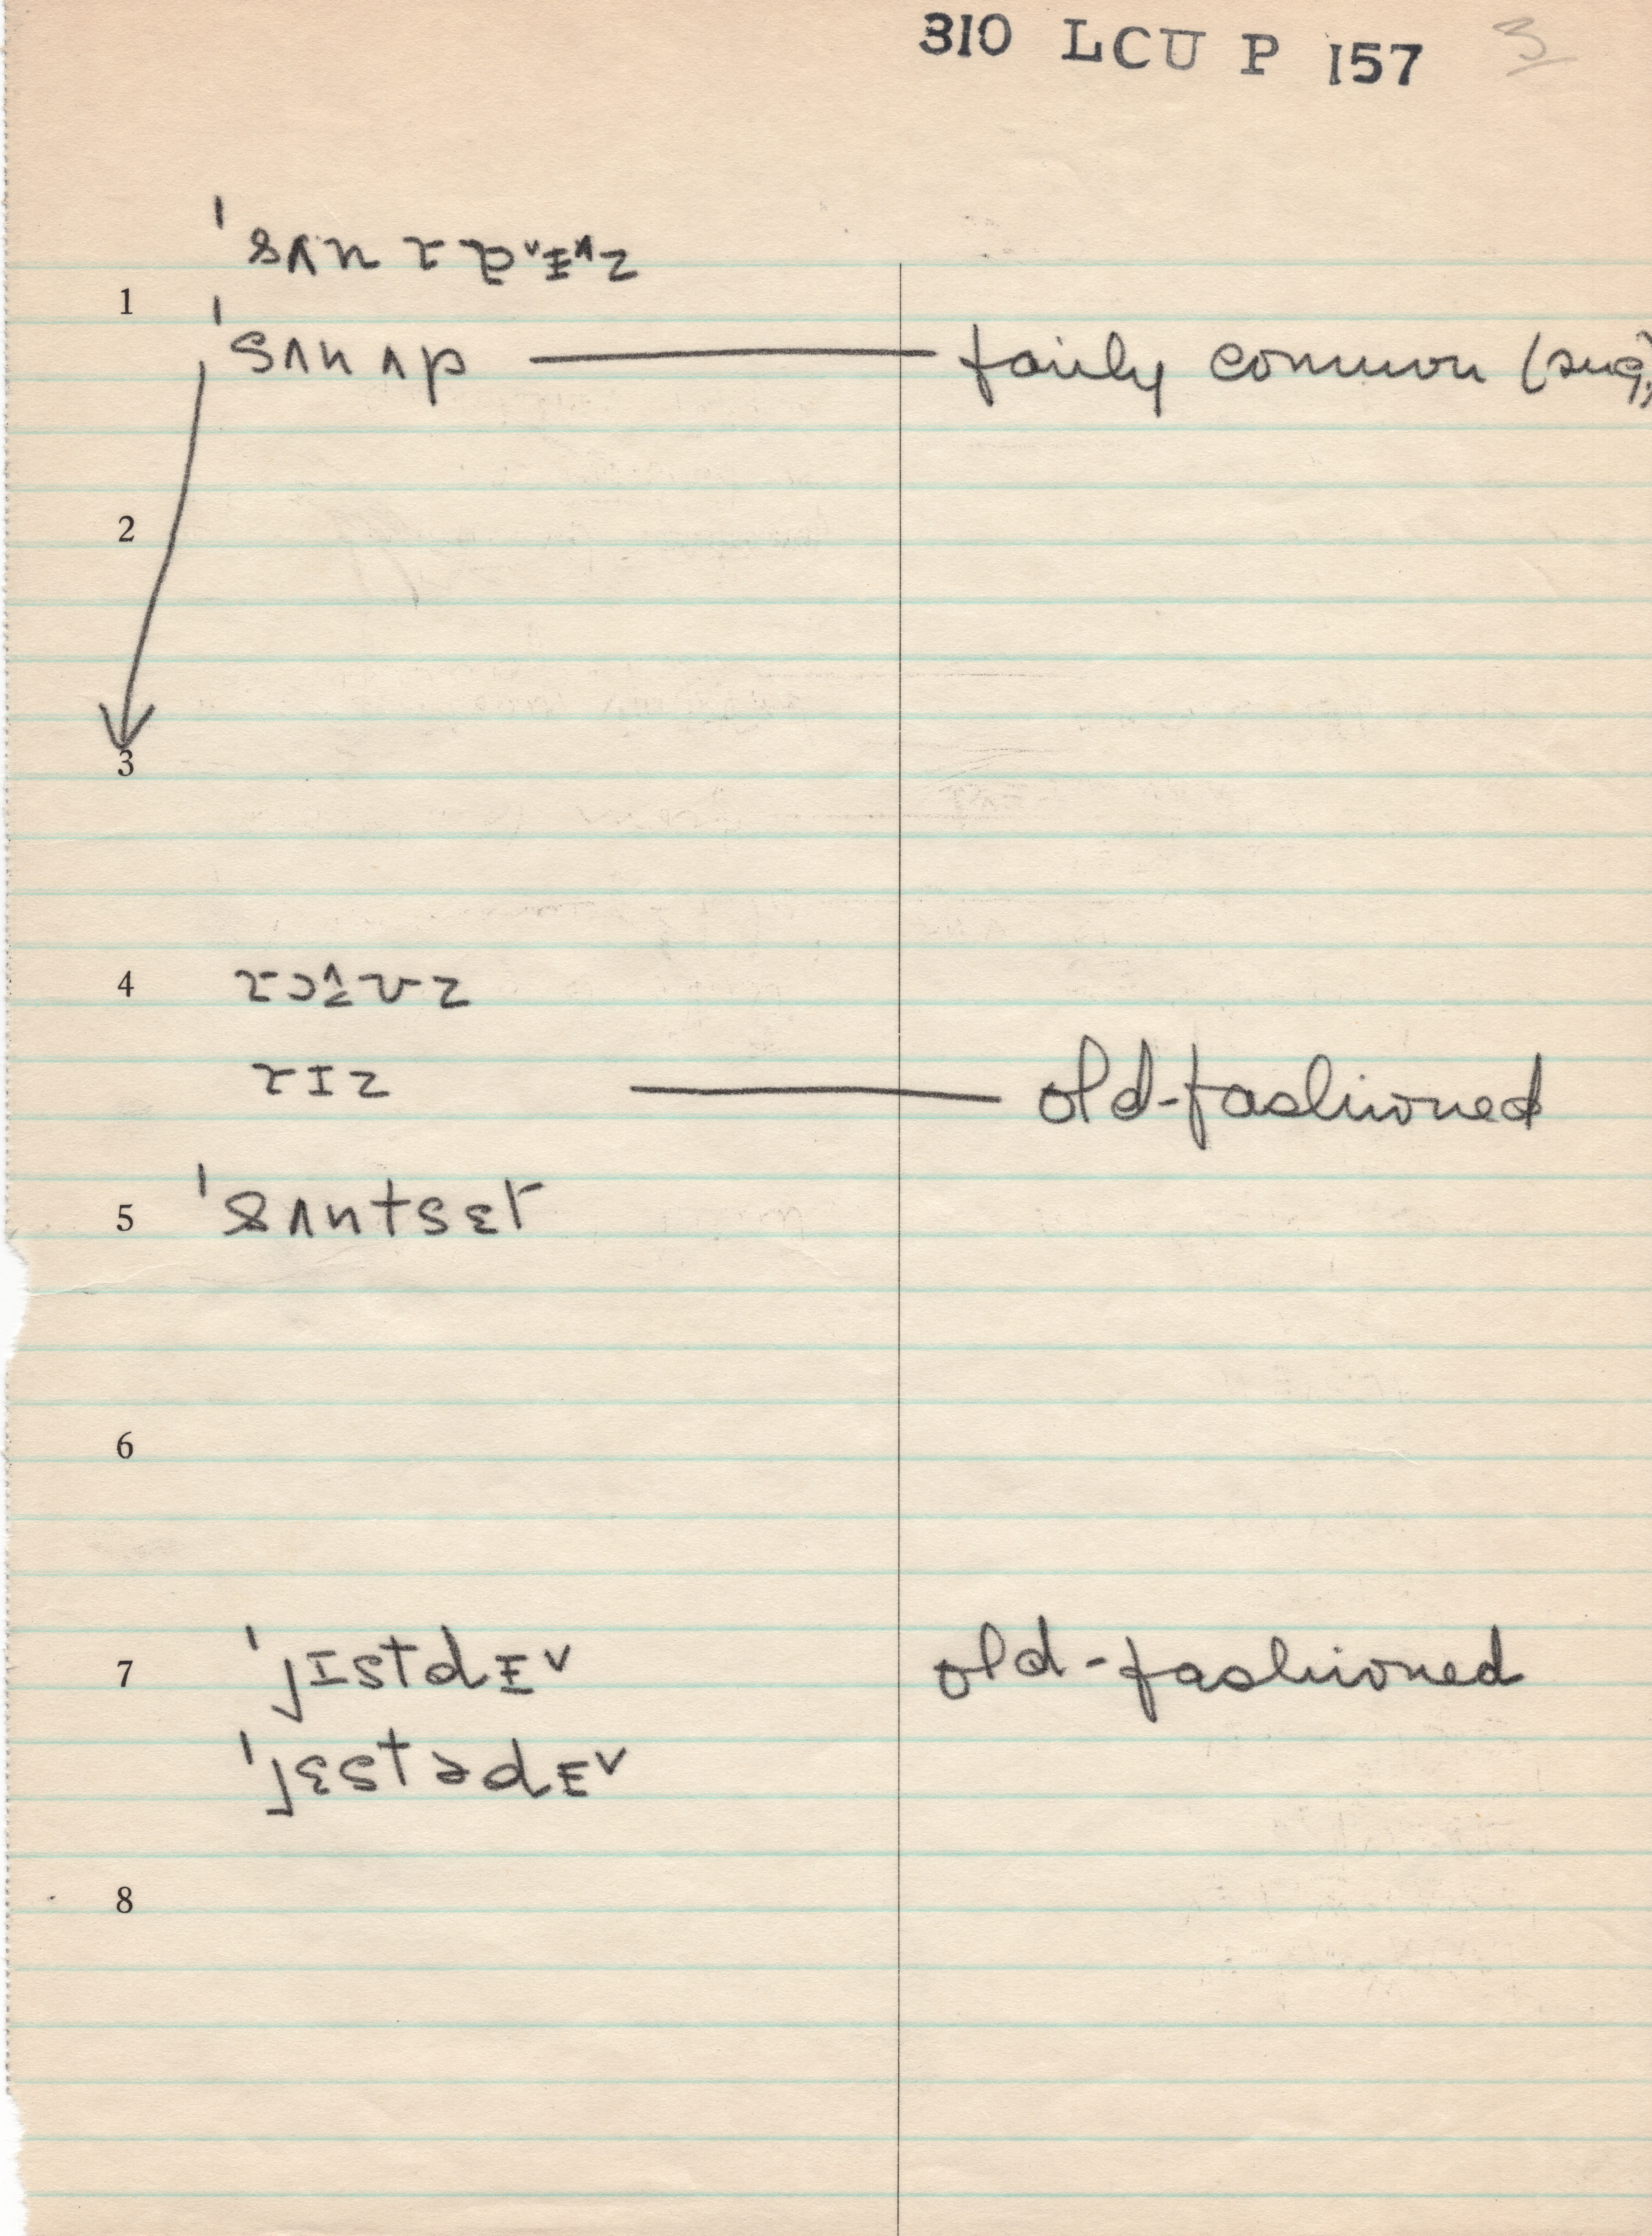 310 LCU P 157 3
1
ˈsʌnʌp fairly common (sug.)
2
3
4
rɪz old-fashioned
5 ˈsʌntsɛt
6
7 ˈjɪstdɪ˅ old-fashioned
ˈjɛstədɪ˅
8